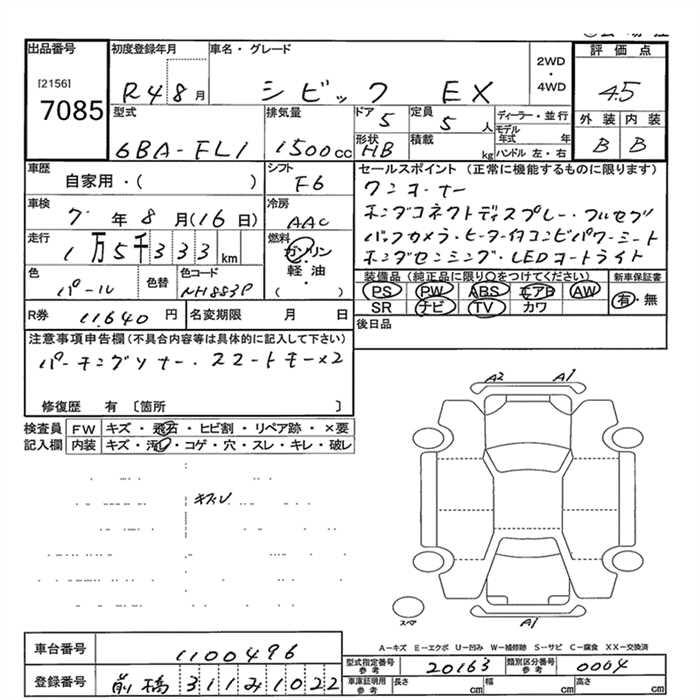 出品番号 初度登録年月 車名・グレード 2WD・4WD 評価点
[2156] 7085 R4 8月 シビック EX 4.5
型式 排気量 ドア 定員 ディーラー・並行 外装 内装
6BA-FL1 1500cc 5 5人 モデル年式 年 B B
形状 HB 積載 kg ハンドル 左・右
車歴 シフト セールスポイント (正常に機能するものに限ります)
自家用・( ) F6 ワンオーナー
車検 冷房 ホンダコネクトディスプレー・フルセグ
7年8月(16日) AAC バックカメラ・ヒーター付コンビパワーシート
走行 燃料 ホンダセンシング・LEDオートライト
1万5千333km ガソリン・軽油・( )
色 色替 色コード 装備品 (純正品に限り○をつけてください) 新車保証書
パール NH883P PS PW ABS エアB AW 有・無
SR ナビ TV カワ
R券 11,640円 名変期限 月 日 後日品
注意事項申告欄 (不具合内容等は具体的に記入して下さい)
パーキングソナー・スマートキー×2
修復歴 有 〔箇所 〕
検査員 FW キズ・飛石・ヒビ割・リペア跡・×要
記入欄 内装 キズ・汚レ・コゲ・穴・スレ・キレ・破レ
A2 A1
キズ有
スペア A1
A-キズ E-エクボ U-凹み W-補修跡 S-サビ C-腐食 XX-交換済
車台番号 1100496 型式指定番号 参考 20163 類別区分番号 参考 0004
登録番号 前橋 311み1022 車庫証明用 参考 長さ cm 幅 cm 高さ cm